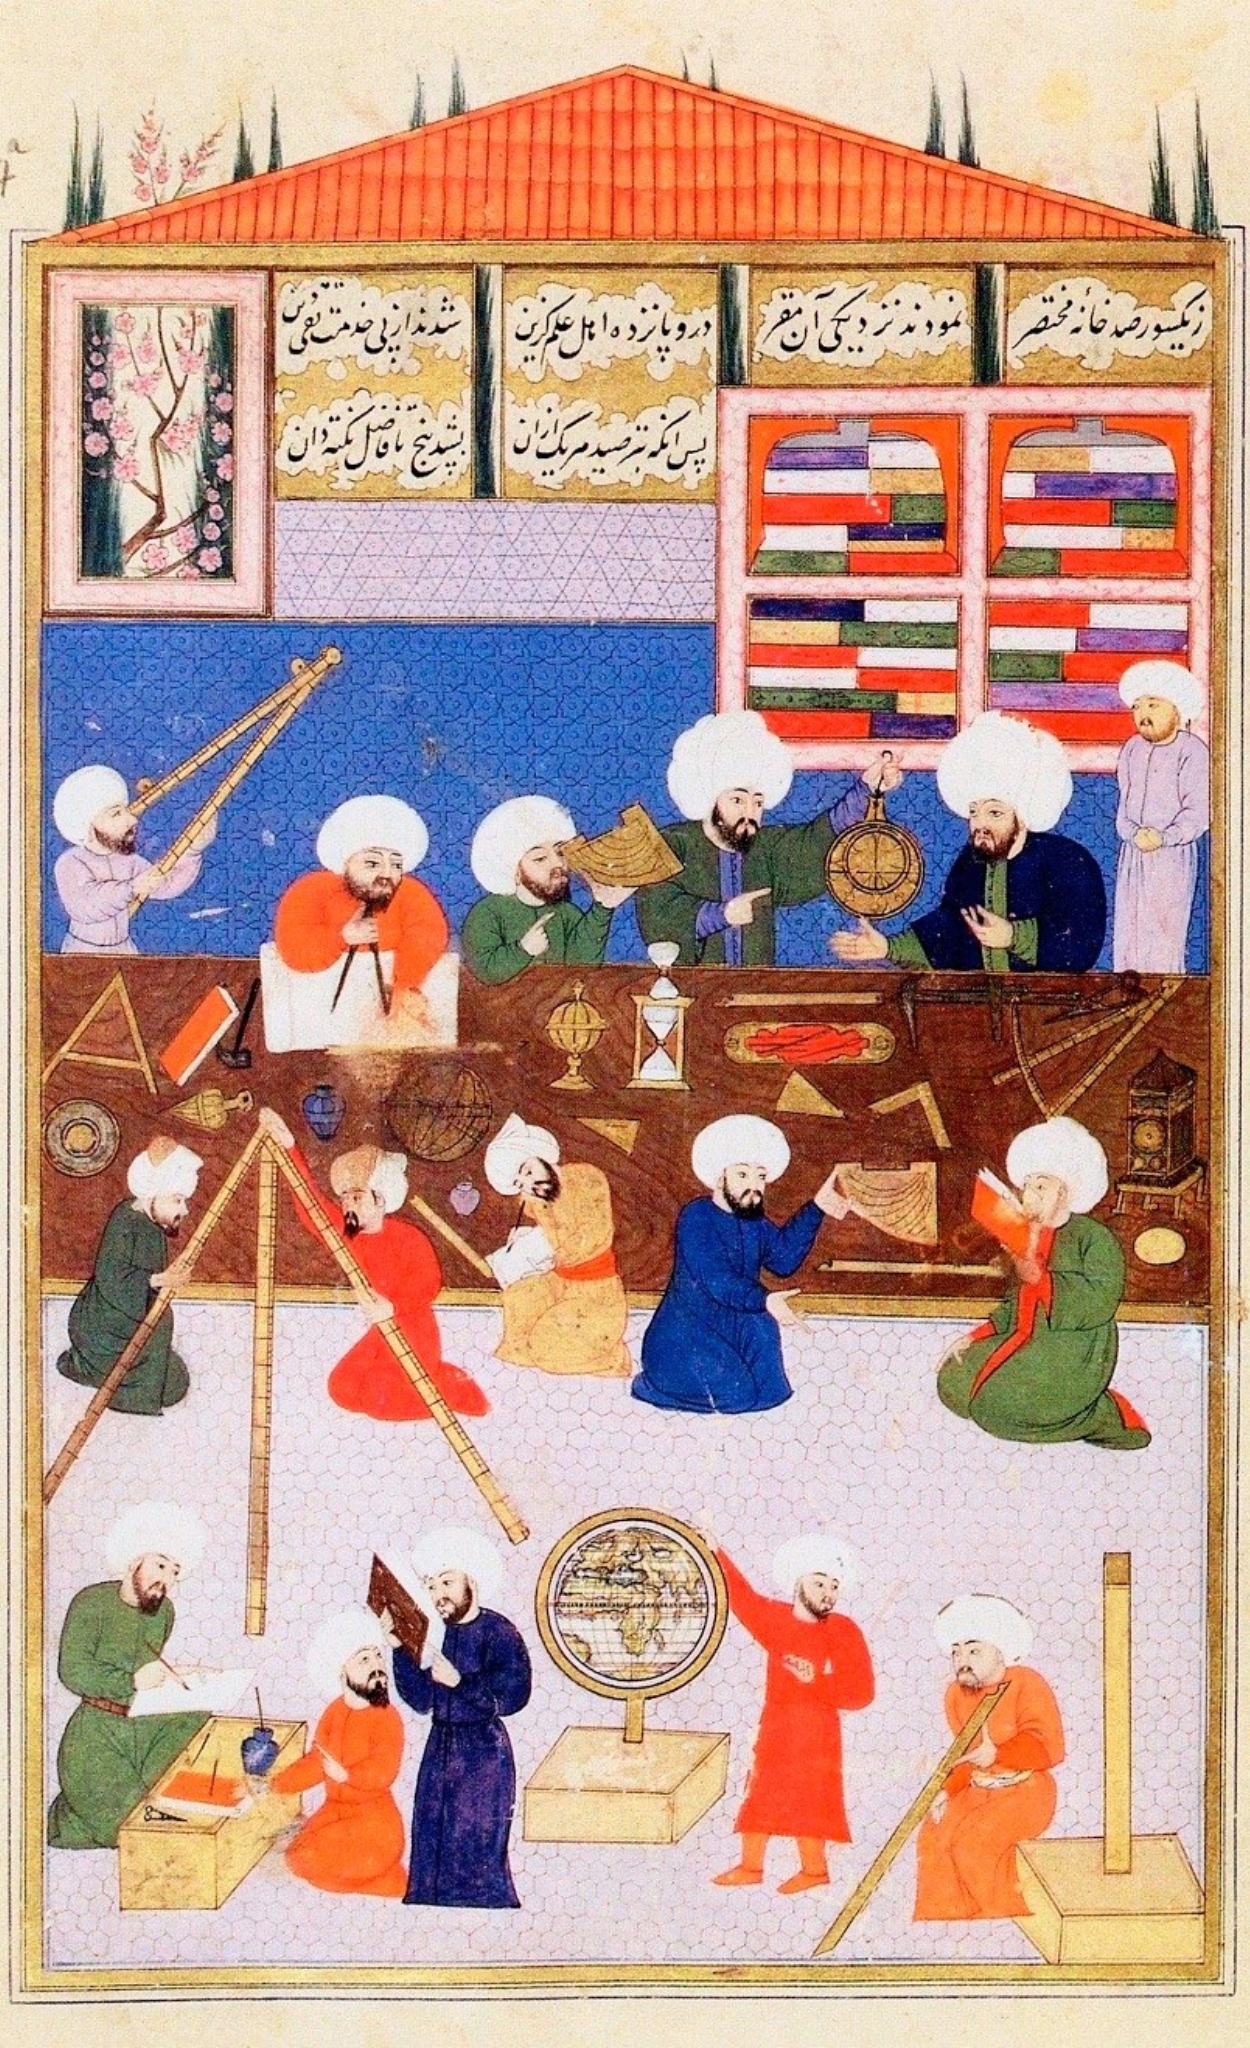 ز یکسو رصد خانهٔ مختصر
نمودند نزدیکی آن مقر
درو پانزده اهل علم گزین
شدند از پی خدمت تقی دین
پس آنکه بتر صید هر یک ازان
بشد پنج تا فاضل نکته دان